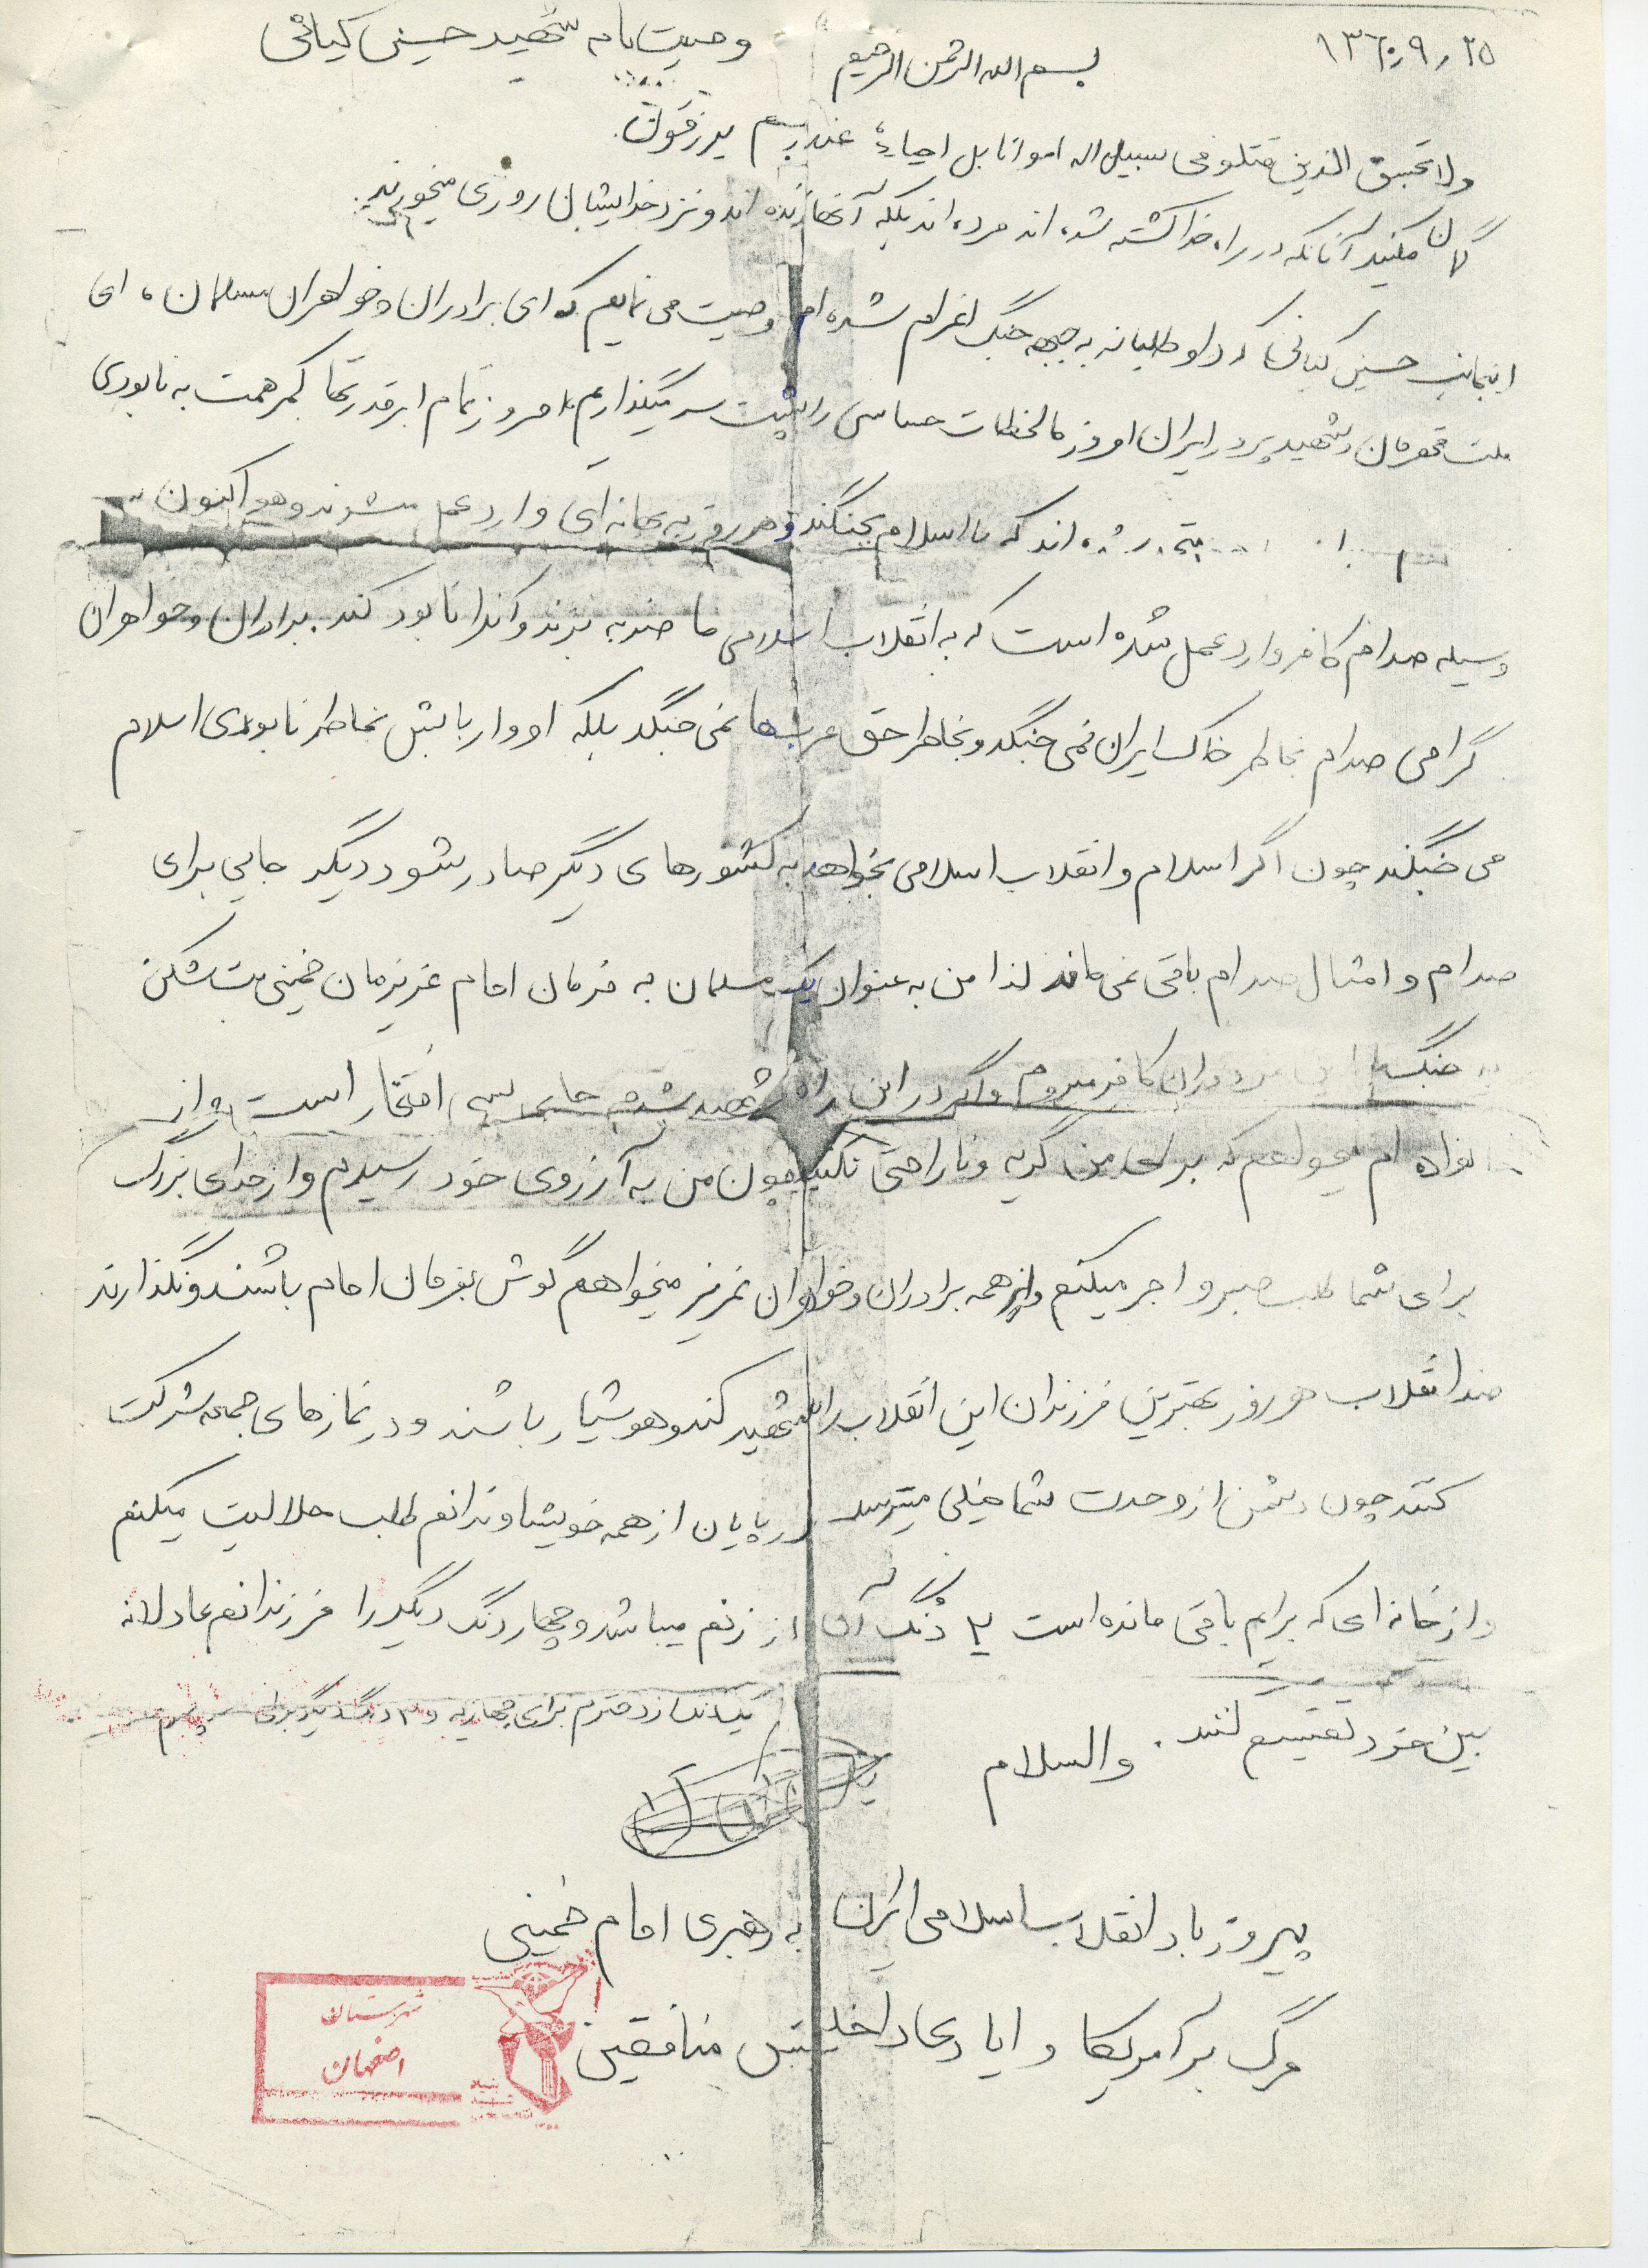 ۱۳۶۰٫۹٫۲۵
وصیت نامه شهید حسین کیانی
بسم الله الرحمن الرحیم
ولا تحسبن الذین قتلو فی سبیل اله امواتا بل احیاءٌ عند ربهم یرزقون.
گمان مکنید آنانکه در راه خدا کشته شده اند مرده اند بلکه آنها زنده اند و نزد خدایشان روزی میخورند.
اینجانب حسین کیانی که داوطلبانه به جبهه جنگ اعزام شده ام وصیت می نمایم که ای برادران و خواهران مسلمان، ای
ملت قهرمان و شهید پرور ایران امروز ما لحظات حساسی را پشت سر میگذاریم امروز تمام ابرقدرتها کمر همت به نابودی
اند که با اسلام بجنگند و هر روز به بهانه ای وارد عمل میشوند و هم اکنون
وسیله صدام کافر وارد عمل شده است که به انقلاب اسلامی ما ضربه بزند و آنرا نابود کند. برادران و خواهران
گرامی صدام بخاطر خاک ایران نمی جنگد و بخاطر حق عربها نمی جنگد بلکه او و اربابش بخاطر نابودی اسلام
می جنگند چون اگر اسلام و انقلاب اسلامی بخواهد به کشورهای دیگر صادر شود دیگر جایی برای
صدام و امثال صدام باقی نمی ماند لذا من به عنوان یک مسلمان به فرمان امام عزیزمان خمینی بت شکن
به جنگ این مزدوران کافر میروم و اگر در این راه شهید شدم جای بسی افتخار است و از
خانواده ام میخواهم که برای من گریه و ناراحتی نکنید چون من به آرزوی خود رسیدم و از خدای بزرگ
برای شما طلب صبر و اجر میکنم و از همه برادران و خواهران عزیز میخواهم گوش بفرمان امام باشند و نگذارند
ضد انقلاب هر روز بهترین فرزندان این انقلاب را شهید کند و هوشیار باشند و در نمازهای جمعه شرکت
کنند چون دشمن از وحدت شما خیلی میترسد در پایان از همه خویشاوندانم طلب حلالیت میکنم
و از خانه ای که برایم باقی مانده است ۲ دنگ آن از زنم میباشد و چهار دنگ دیگر را فرزندانم عادلانه
بین خود تقسیم کنند. والسلام
از دخترم برای جهازیه و ۳ دنگ دیگر برای پسرم
پیروز باد انقلاب اسلامی ایران به رهبری امام خمینی
مرگ بر آمریکا و ایادی داخلیش منافقین
شهرستان
اصفهان